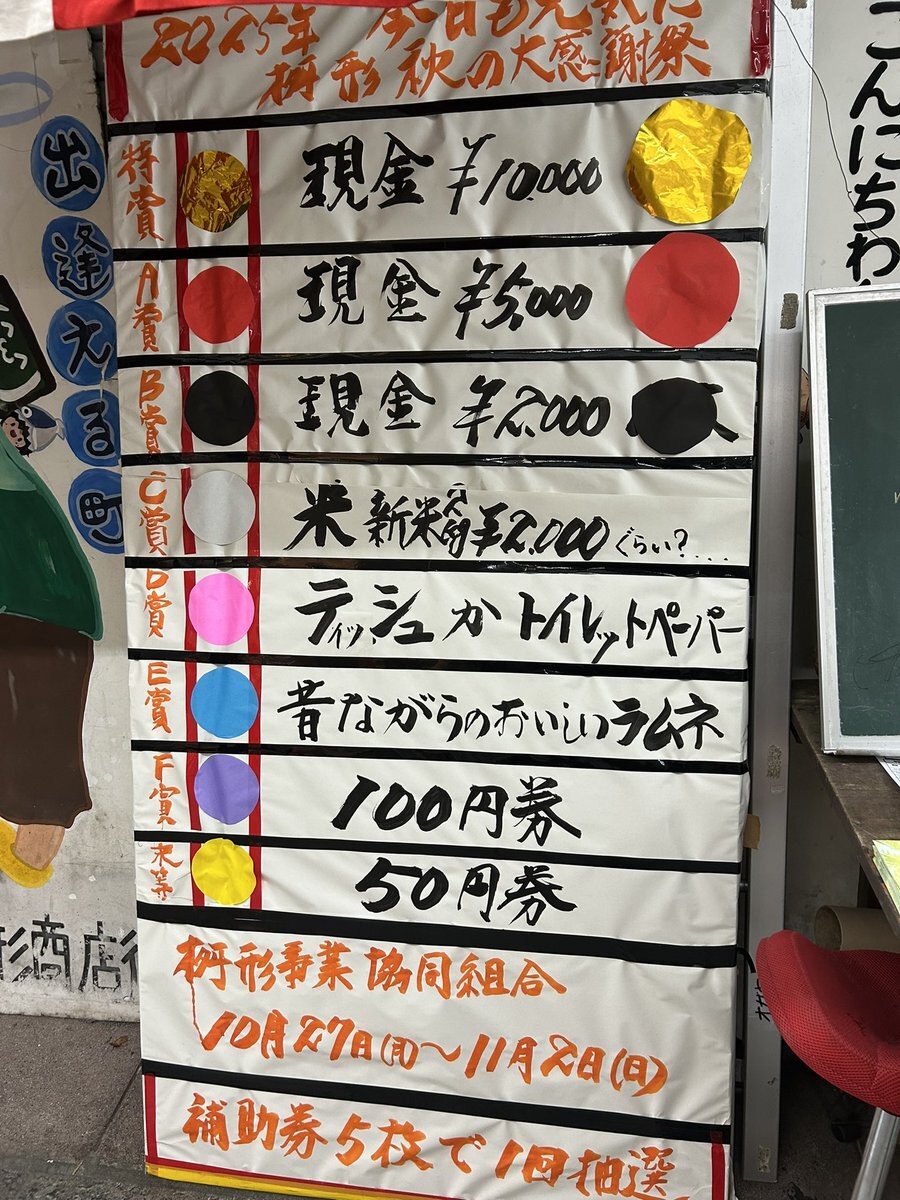 2025年 今日も元気に
桝形 秋の大感謝祭
特賞 現金 ¥10,000
A賞 現金 ¥5,000
B賞 現金 ¥2,000
C賞 米 新米 ¥2,000 ぐらい?....
D賞 ティッシュか トイレットペーパー
E賞 昔ながらのおいしいラムネ
F賞 100円券
末等 50円券
桝形事業協同組合
10月27日(月)〜11月2日(日)
補助券5枚で1回抽選
出逢える町
形商店
こんにちわ